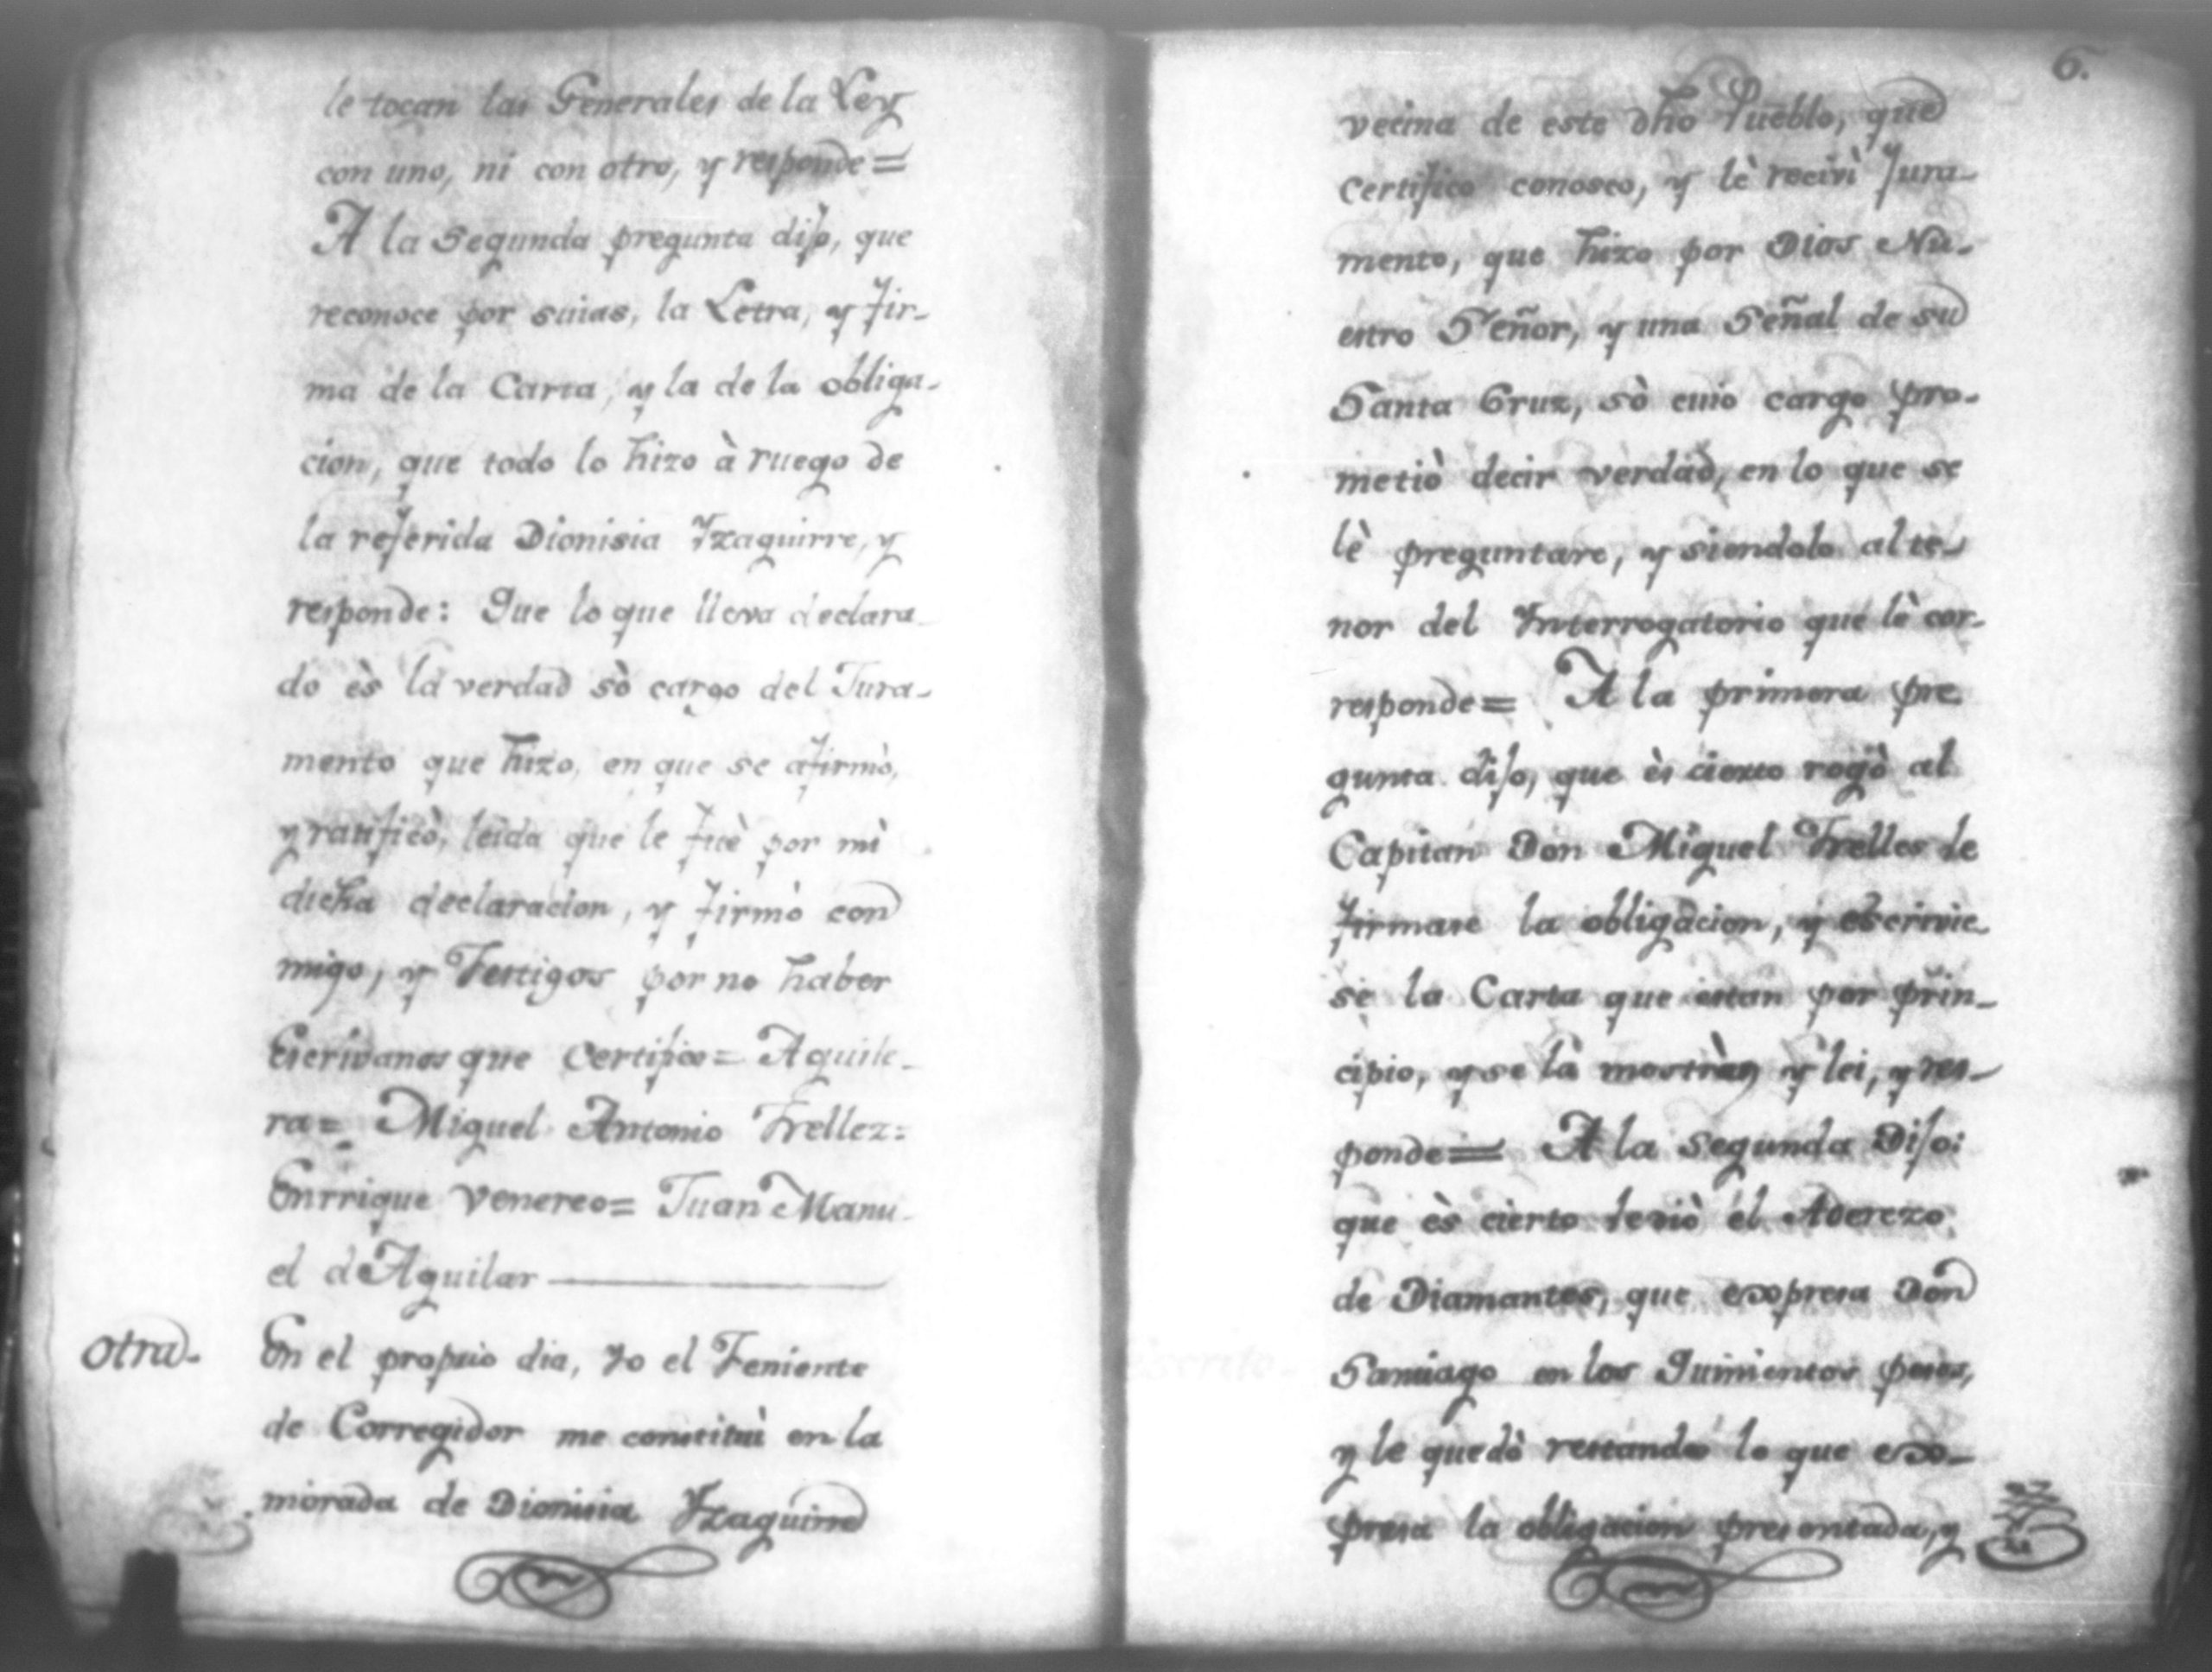 le tocan las Generales de la Ley
con uno, ni con otro, y responde=
A la Segunda pregunta dijo, que
reconoce por suias, la Letra, y fir-
ma de la Carta, y la de la obliga-
cion, que todo lo hizo à ruego de
la referida Dionisia Yzaguirre, y
responde: Que lo que lleva declara-
do ès la verdad sò cargo del Jura-
mento que hizo, en que se afirmò,
y ratificò, leida que le fuè por mì
dicha declaracion, y firmò con
migo, y Testigos por no haber
Escrivanos que Certifico= Aguile-
ra= Miguel Antonio Trellez=
Enrrique Venereo= Juan Manu-
el de Aguilar
otra.
En el propio dia, Yo el Teniente
de Corregidor me constituì en la
morada de Dionisia Yzaguirre
6.
vecina de este dho Pueblo, que
Certifico conosco, y lè recivì Jura-
mento, que hizo por Dios Nu-
estro Señor, y una Señal de su
Santa Cruz, sò cuio cargo pro-
metiò decir verdad, en lo que se
lè preguntare, y siendolo al te-
nor del Ynterrogatorio que lè cor-
responde= A la primera pre
gunta dijo, que ès cierto rogò al
Capitan Don Miguel Trelles le
firmase la obligacion, y escrivie
se la Carta que estan por prin-
cipio, y se la mostrè, y lei, y res-
ponde= A la segunda Dijo:
que ès cierto le diò el Aderezo
de Diamantes, que expresa Don
Santiago en los Quinientos pesos,
y le quedò restando lo que ex-
presa la obligacion presentada, y